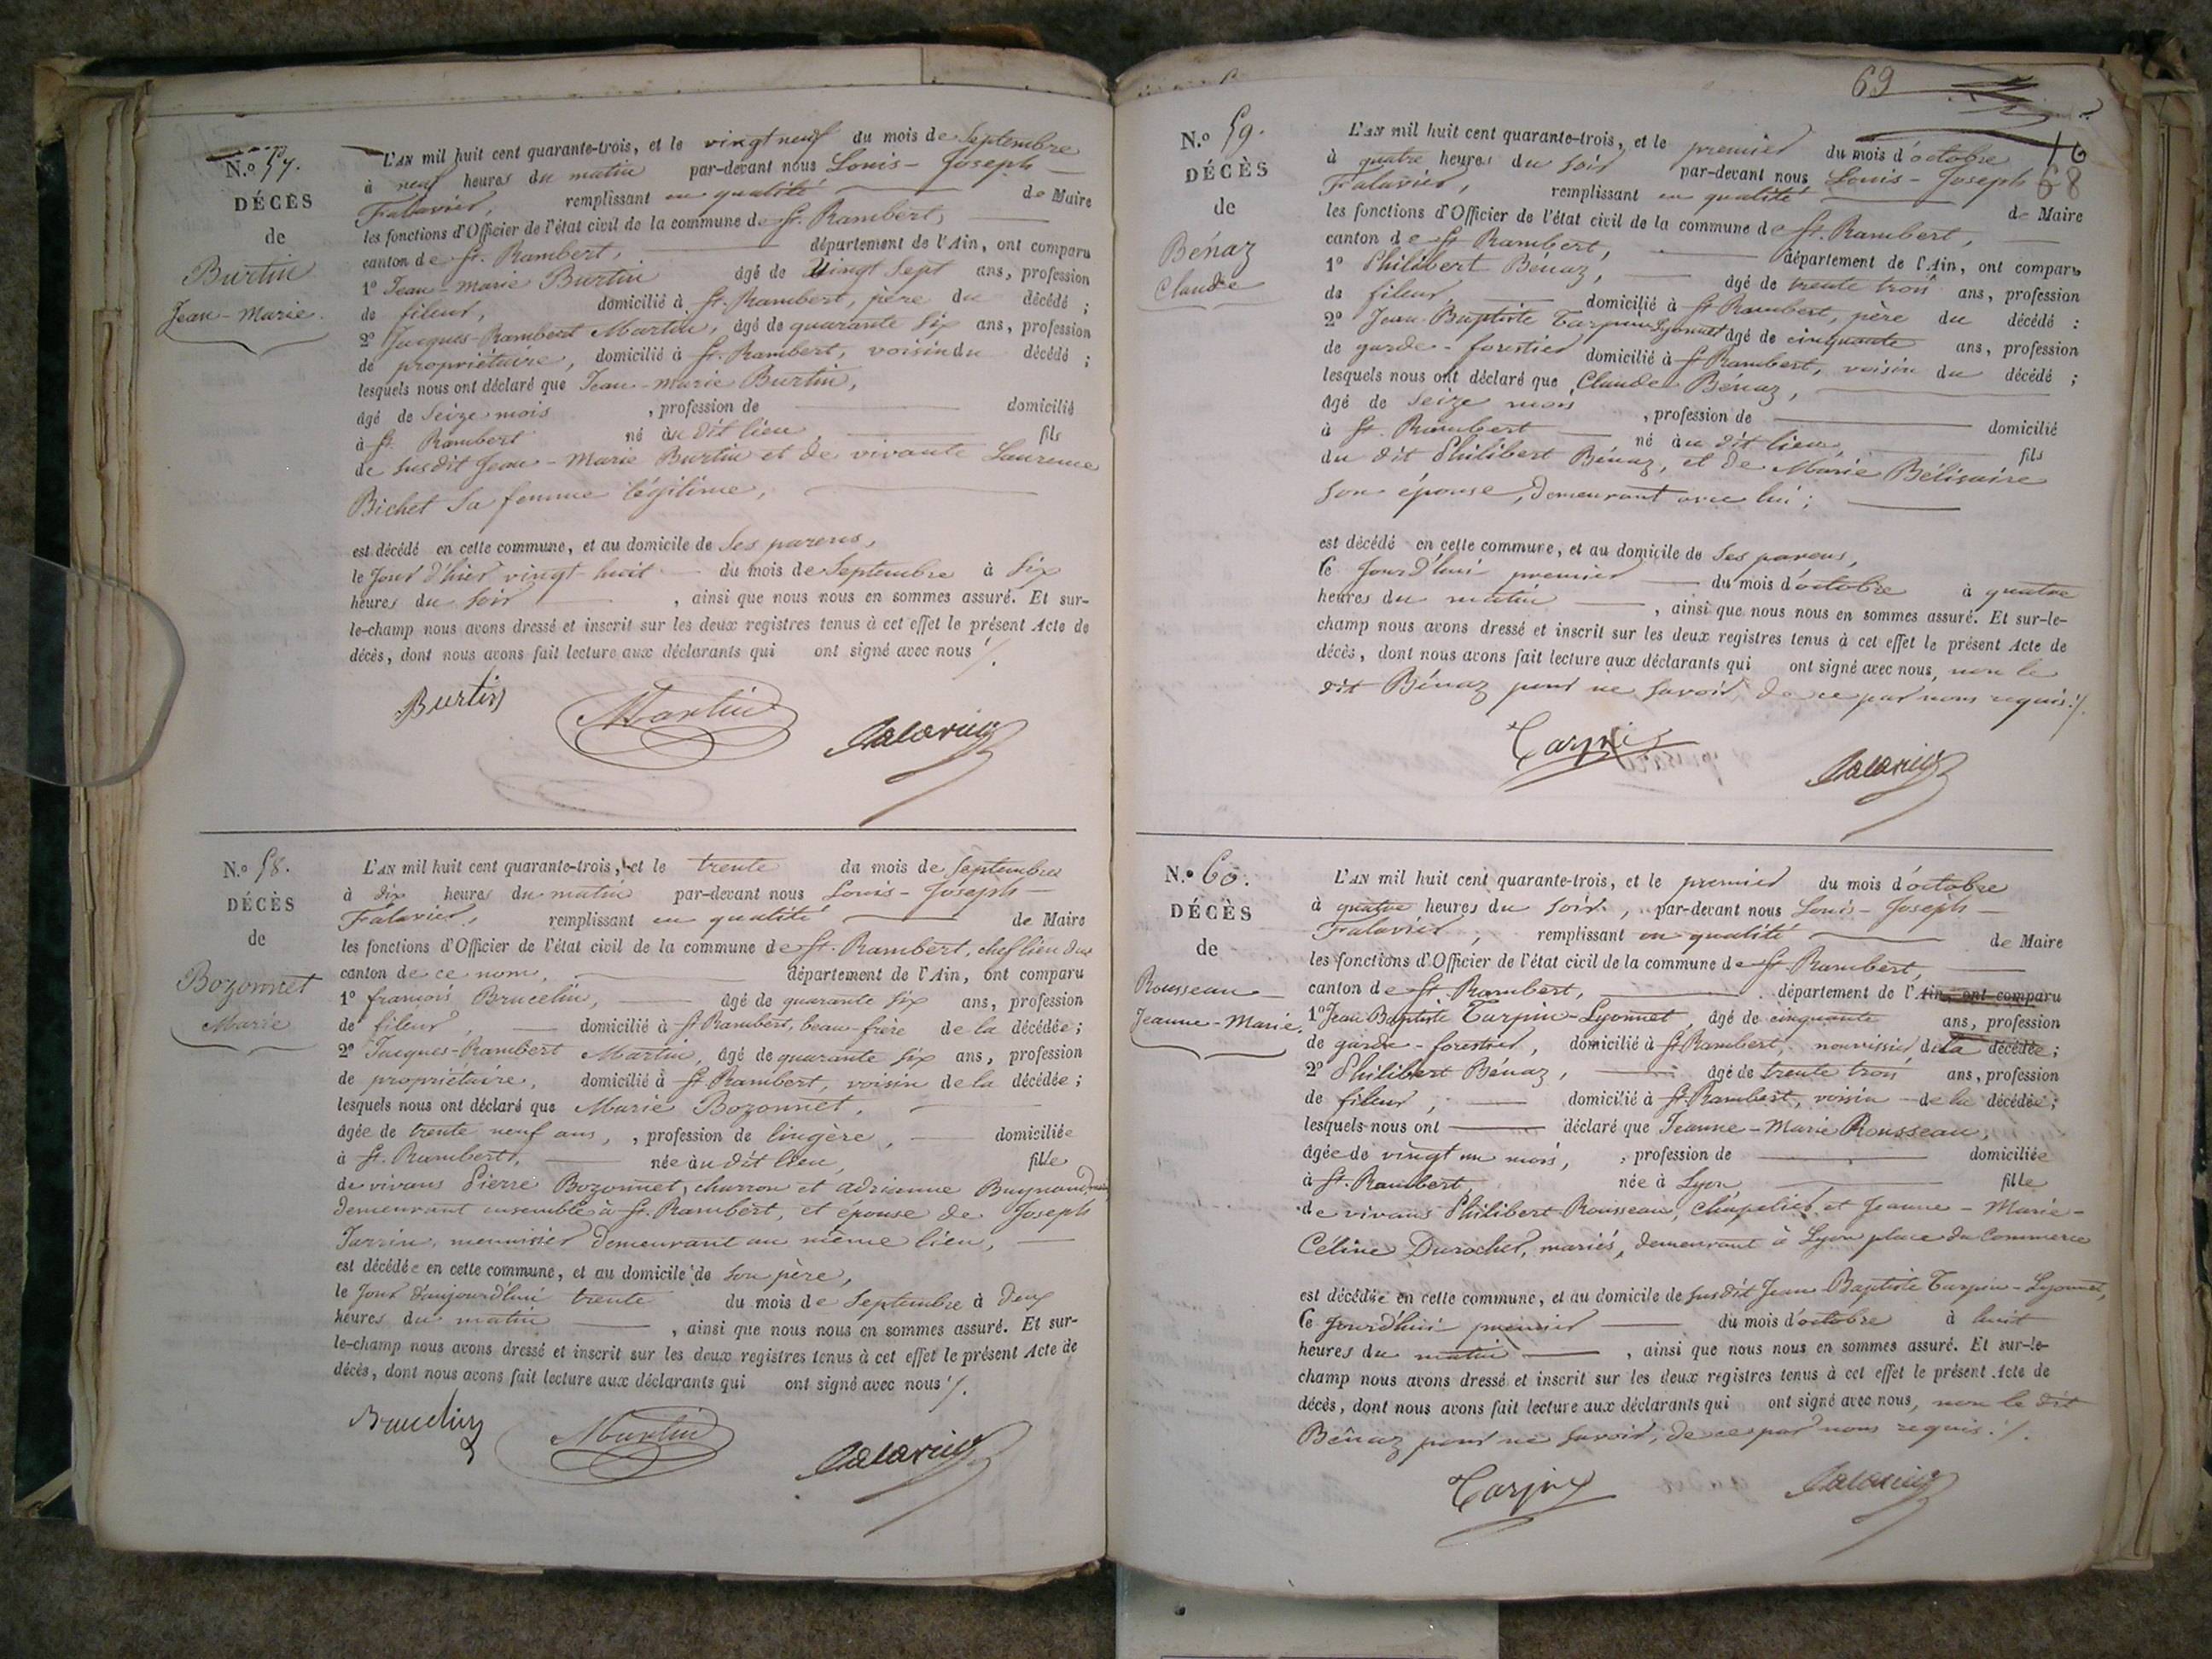 N.o 57.
DÉCÈS
de
Burtin
Jean-Marie.
L'AN mil huit cent quarante-trois, et le vingt neuf du mois de Septembre
à neuf heures du matin par-devant nous Louis-Joseph
Falavier, remplissant en qualité de Maire
les fonctions d'Officier de l'état civil de la commune de St. Rambert,
canton de St. Rambert, département de l'Ain, ont comparu
1o Jean-Marie Burtin âgé de vingt Sept ans, profession
de fileur, domicilié à St. Rambert, père du décédé ;
2o Jacques-Rambert Martin, âgé de quarante six ans, profession
de propriétaire, domicilié à St. Rambert, voisin du décédé ;
lesquels nous ont déclaré que Jean-Marie Burtin,
âgé de Seize mois , profession de domicilié
à St. Rambert né au dit lieu fils
de susdit Jean-Marie Burtin et de vivante Laurence
Bichet sa femme légitime,
est décédé en cette commune, et au domicile de ses parens,
le jour d'hier vingt-huit du mois de Septembre à Six
heures du soir , ainsi que nous nous en sommes assuré. Et sur-
le-champ nous avons dressé et inscrit sur les deux registres tenus à cet effet le présent Acte de
décès, dont nous avons fait lecture aux déclarants qui ont signé avec nous ./.
Burtin Martin Falavier
N.o 58.
DÉCÈS
de
Bozonnet
Marie
L'AN mil huit cent quarante-trois, et le trente du mois de Septembre
à dix heures du matin par-devant nous Louis-Joseph
Falavier, remplissant en qualité de Maire
les fonctions d'Officier de l'état civil de la commune de St. Rambert, chef lieu du
canton de ce nom, département de l'Ain, ont comparu
1o françois Brucelin, âgé de quarante six ans, profession
de fileur, domicilié à St. Rambert, beau-frère de la décédée ;
2o Jacques-Rambert Martin, âgé de quarante six ans, profession
de propriétaire, domicilié à St. Rambert, voisin de la décédée ;
lesquels nous ont déclaré que Marie Bozonnet,
âgée de trente neuf ans, , profession de lingère, domiciliée
à St. Rambert, née au dit lieu, fille
de vivans Pierre Bozonnet, charron et adrianne
demeurant ensemble à St. Rambert, et épouse de Joseph
Jarrin, menuisier demeurant au même lieu,
est décédée en cette commune, et au domicile de son père,
le jour d'aujourd'hui trente du mois de Septembre à deux
heures du matin , ainsi que nous nous en sommes assuré. Et sur-
le-champ nous avons dressé et inscrit sur les deux registres tenus à cet effet le présent Acte de
décès, dont nous avons fait lecture aux déclarants qui ont signé avec nous ./.
Brucelin Martin Falavier
69
70
68
N.o 59.
DÉCÈS
de
Bénaz
Claude
L'AN mil huit cent quarante-trois, et le premier du mois d'octobre
à quatre heures du soir par-devant nous Louis-Joseph
Falavier, remplissant en qualité de Maire
les fonctions d'Officier de l'état civil de la commune de St. Rambert,
canton de St. Rambert, département de l'Ain, ont comparu
1o Philibert Bénaz, âgé de trente trois ans, profession
de fileur, domicilié à St. Rambert, père du décédé :
2o Jean-Baptiste Turpin-Lyonnet âgé de cinquante ans, profession
de garde-forestier domicilié à St. Rambert, voisin du décédé ;
lesquels nous ont déclaré que Claude Bénaz,
âgé de seize mois , profession de domicilié
à St. Rambert né au dit lieu, fils
du dit Philibert Bénaz, et de Marie Bélisaire
son épouse, demeurant avec lui ;
est décédé en cette commune, et au domicile de ses parens,
ce jourd'hui premier du mois d'octobre à quatre
heures du matin , ainsi que nous nous en sommes assuré. Et sur-le-
champ nous avons dressé et inscrit sur les deux registres tenus à cet effet le présent Acte de
décès, dont nous avons fait lecture aux déclarants qui ont signé avec nous, non le
dit Bénaz pour ne savoir, de ce par nous requis ./.
Turpin Falavier
N.o 60.
DÉCÈS
de
Rousseau
Jeanne-Marie.
L'AN mil huit cent quarante-trois, et le premier du mois d'octobre
à quatre heures du soir, par-devant nous Louis-Joseph
Falavier, remplissant en qualité de Maire
les fonctions d'Officier de l'état civil de la commune de St. Rambert,
canton de St. Rambert, département de l'Ain, ont comparu
1o Jean Baptiste Turpin-Lyonnet, âgé de cinquante ans, profession
de garde-forestier, domicilié à St. Rambert, nourissier de la décédée ;
2o Philibert Bénaz, âgé de trente trois ans, profession
de fileur, domicilié à St. Rambert, voisin de la décédée ;
lesquels nous ont déclaré que Jeanne-Marie Rousseau,
âgée de vingt un mois, , profession de domiciliée
à St. Rambert, née à Lyon, fille
de vivans Philibert Rousseau, chapelier et Jeanne-Marie-
Céline Durochet, mariés, demeurant à Lyon place du Commerce
est décédée en cette commune, et au domicile de susdit Jean Baptiste Turpin-Lyonnet,
ce jourd'hui premier du mois d'octobre à huit
heures du matin , ainsi que nous nous en sommes assuré. Et sur-le-
champ nous avons dressé et inscrit sur les deux registres tenus à cet effet le présent Acte de
décès, dont nous avons fait lecture aux déclarants qui ont signé avec nous, non le dit
Bénaz pour ne savoir, de ce par nous requis ./.
Turpin Falavier